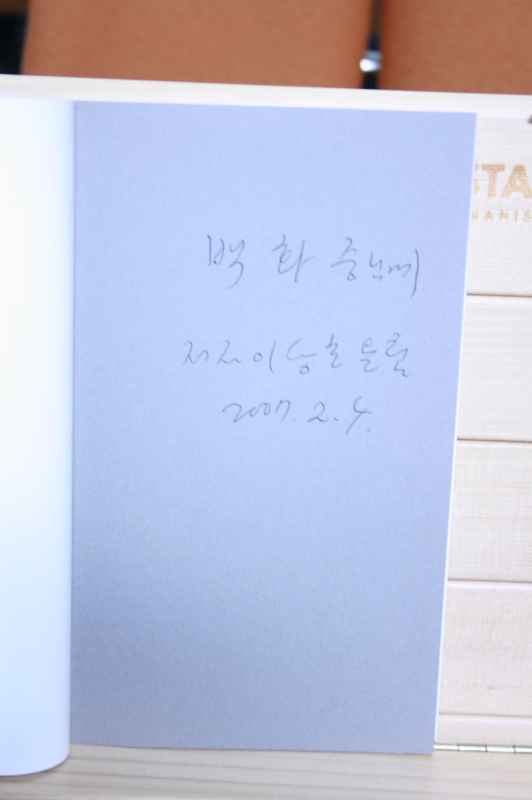 백 화 종님께
저자 이승호 드림
2007. 2. 4.
STA
HANIS